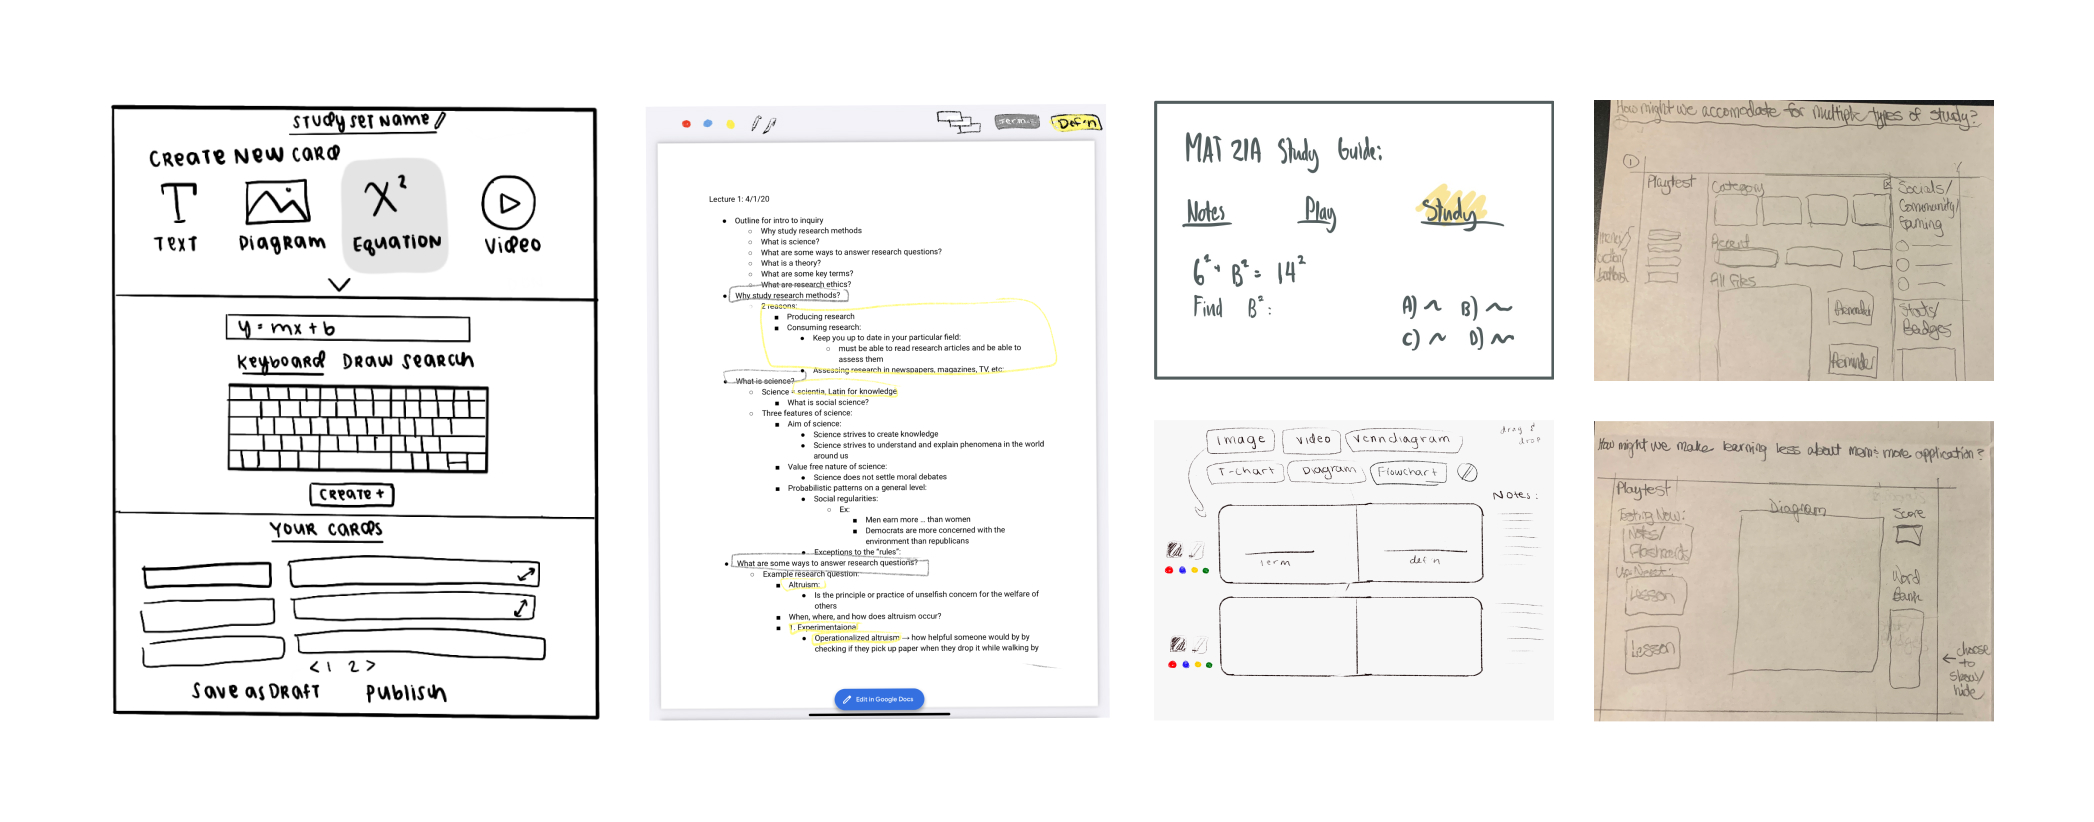 STUDY SET NAME
CREATE NEW CARD
TEXT
DIAGRAM
X²
EQUATION
VIDEO
y = mx + b
KEYBOARD DRAW SEARCH
CREATE +
YOUR CARDS
< 1 2 >
SAVE AS DRAFT PUBLISH
Term
Def'n
Lecture 1: 4/1/20
Outline for intro to inquiry
Why study research methods
What is science?
What are some ways to answer research questions?
What is a theory?
What are some key terms?
What are research ethics?
Why study research methods?
2 reasons:
Producing research
Consuming research:
Keep you up to date in your particular field:
must be able to read research articles and be able to
assess them
Assessing research in newspapers, magazines, TV, etc:
What is science?
Science = scientia, Latin for knowledge
What is social science?
Three features of science:
Aim of science:
Science strives to create knowledge
Science strives to understand and explain phenomena in the world
around us
Value free nature of science:
Science does not settle moral debates
Probabilistic patterns on a general level:
Social regularities:
Ex:
Men earn more ... than women
Democrats are more concerned with the
environment than republicans
Exceptions to the "rules":
What are some ways to answer research questions?
Example research question:
Altruism:
Is the principle or practice of unselfish concern for the welfare of
others
When, where, and how does altruism occur?
1. Experimentaiona
Operationalized altruism → how helpful someone would by by
checking if they pick up paper when they drop it while walking by
Edit in Google Docs
MAT 21A Study Guide:
Notes Play Study
6² + B² = 14²
Find B²:
A) B)
C) D)
Image
video
venndiagram
drag &
drop
T-chart
Diagram
Flowchart
Notes:
term
def'n
How might we accomodate for multiple types of study?
1
Playtest
Category
Recent
All Files
Socials/
Community/
Gaming
Stats/
Badges
Reminder
How might we make learning less about mem: more application?
Playtest
Testing Now:
Notes/
Flashcards
Up Next:
Lesson
Lesson
Diagram
Score
Word
Bank
← choose
to
show/
hide